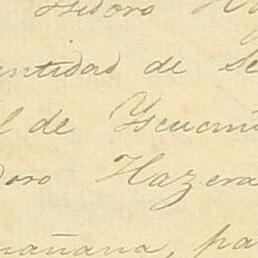 Isidoro Ha
entidad de Se
l de Yscucui
doro Hazera
mañana, pa